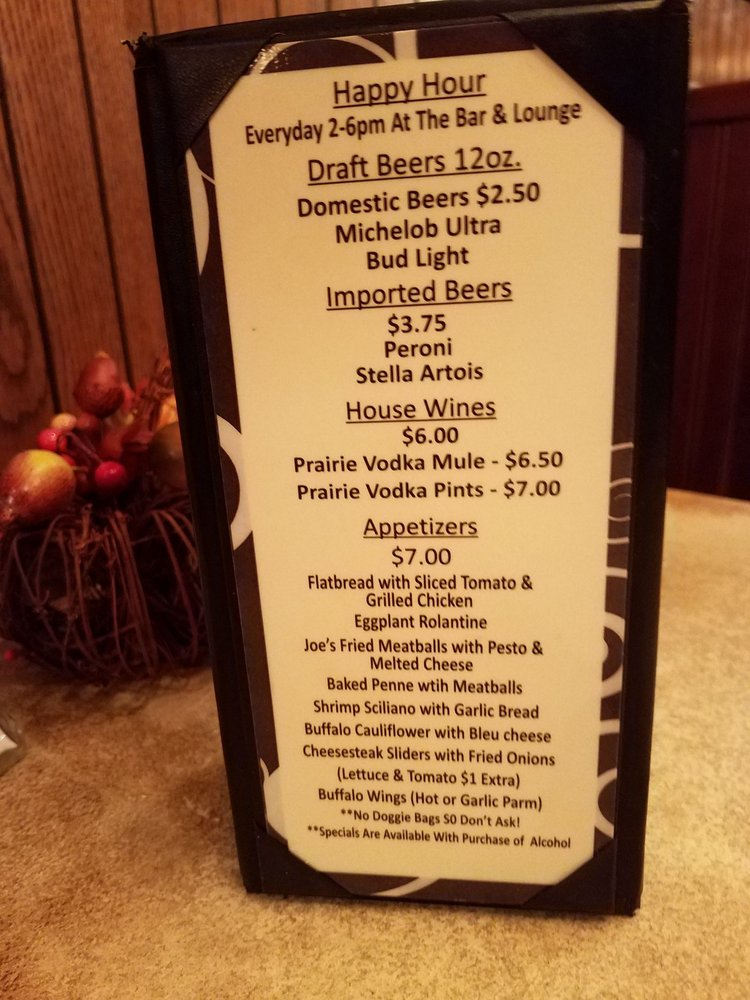 Happy Hour
Everyday 2-6pm At The Bar & Lounge
Draft Beers 12oz.
Domestic Beers $2.50
Michelob Ultra
Bud Light
Imported Beers
$3.75
Peroni
Stella Artois
House Wines
$6.00
Prairie Vodka Mule - $6.50
Prairie Vodka Pints - $7.00
Appetizers
$7.00
Flatbread with Sliced Tomato &
Grilled Chicken
Eggplant Rolantine
Joe's Fried Meatballs with Pesto &
Melted Cheese
Baked Penne wtih Meatballs
Shrimp Sciliano with Garlic Bread
Buffalo Cauliflower with Bleu cheese
Cheesesteak Sliders with Fried Onions
(Lettuce & Tomato $1 Extra)
Buffalo Wings (Hot or Garlic Parm)
**No Doggie Bags S0 Don't Ask!
**Specials Are Available With Purchase of Alcohol